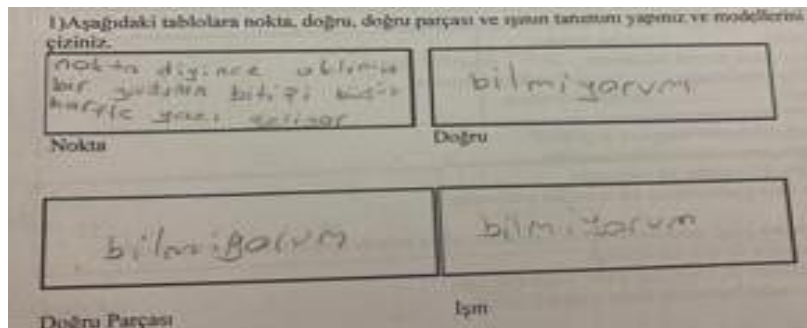 1)Aşağıdaki tablolara nokta, doğru, doğru parçası ve ışının tanımını yapınız ve modellerini
çiziniz.
nokta diyince aklımıza
bir yazının bitişi büyük
harfle yazı geliyor
Nokta
bilmiyorum
Doğru
bilmiyorum
Doğru Parçası
bilmiyorum
Işın